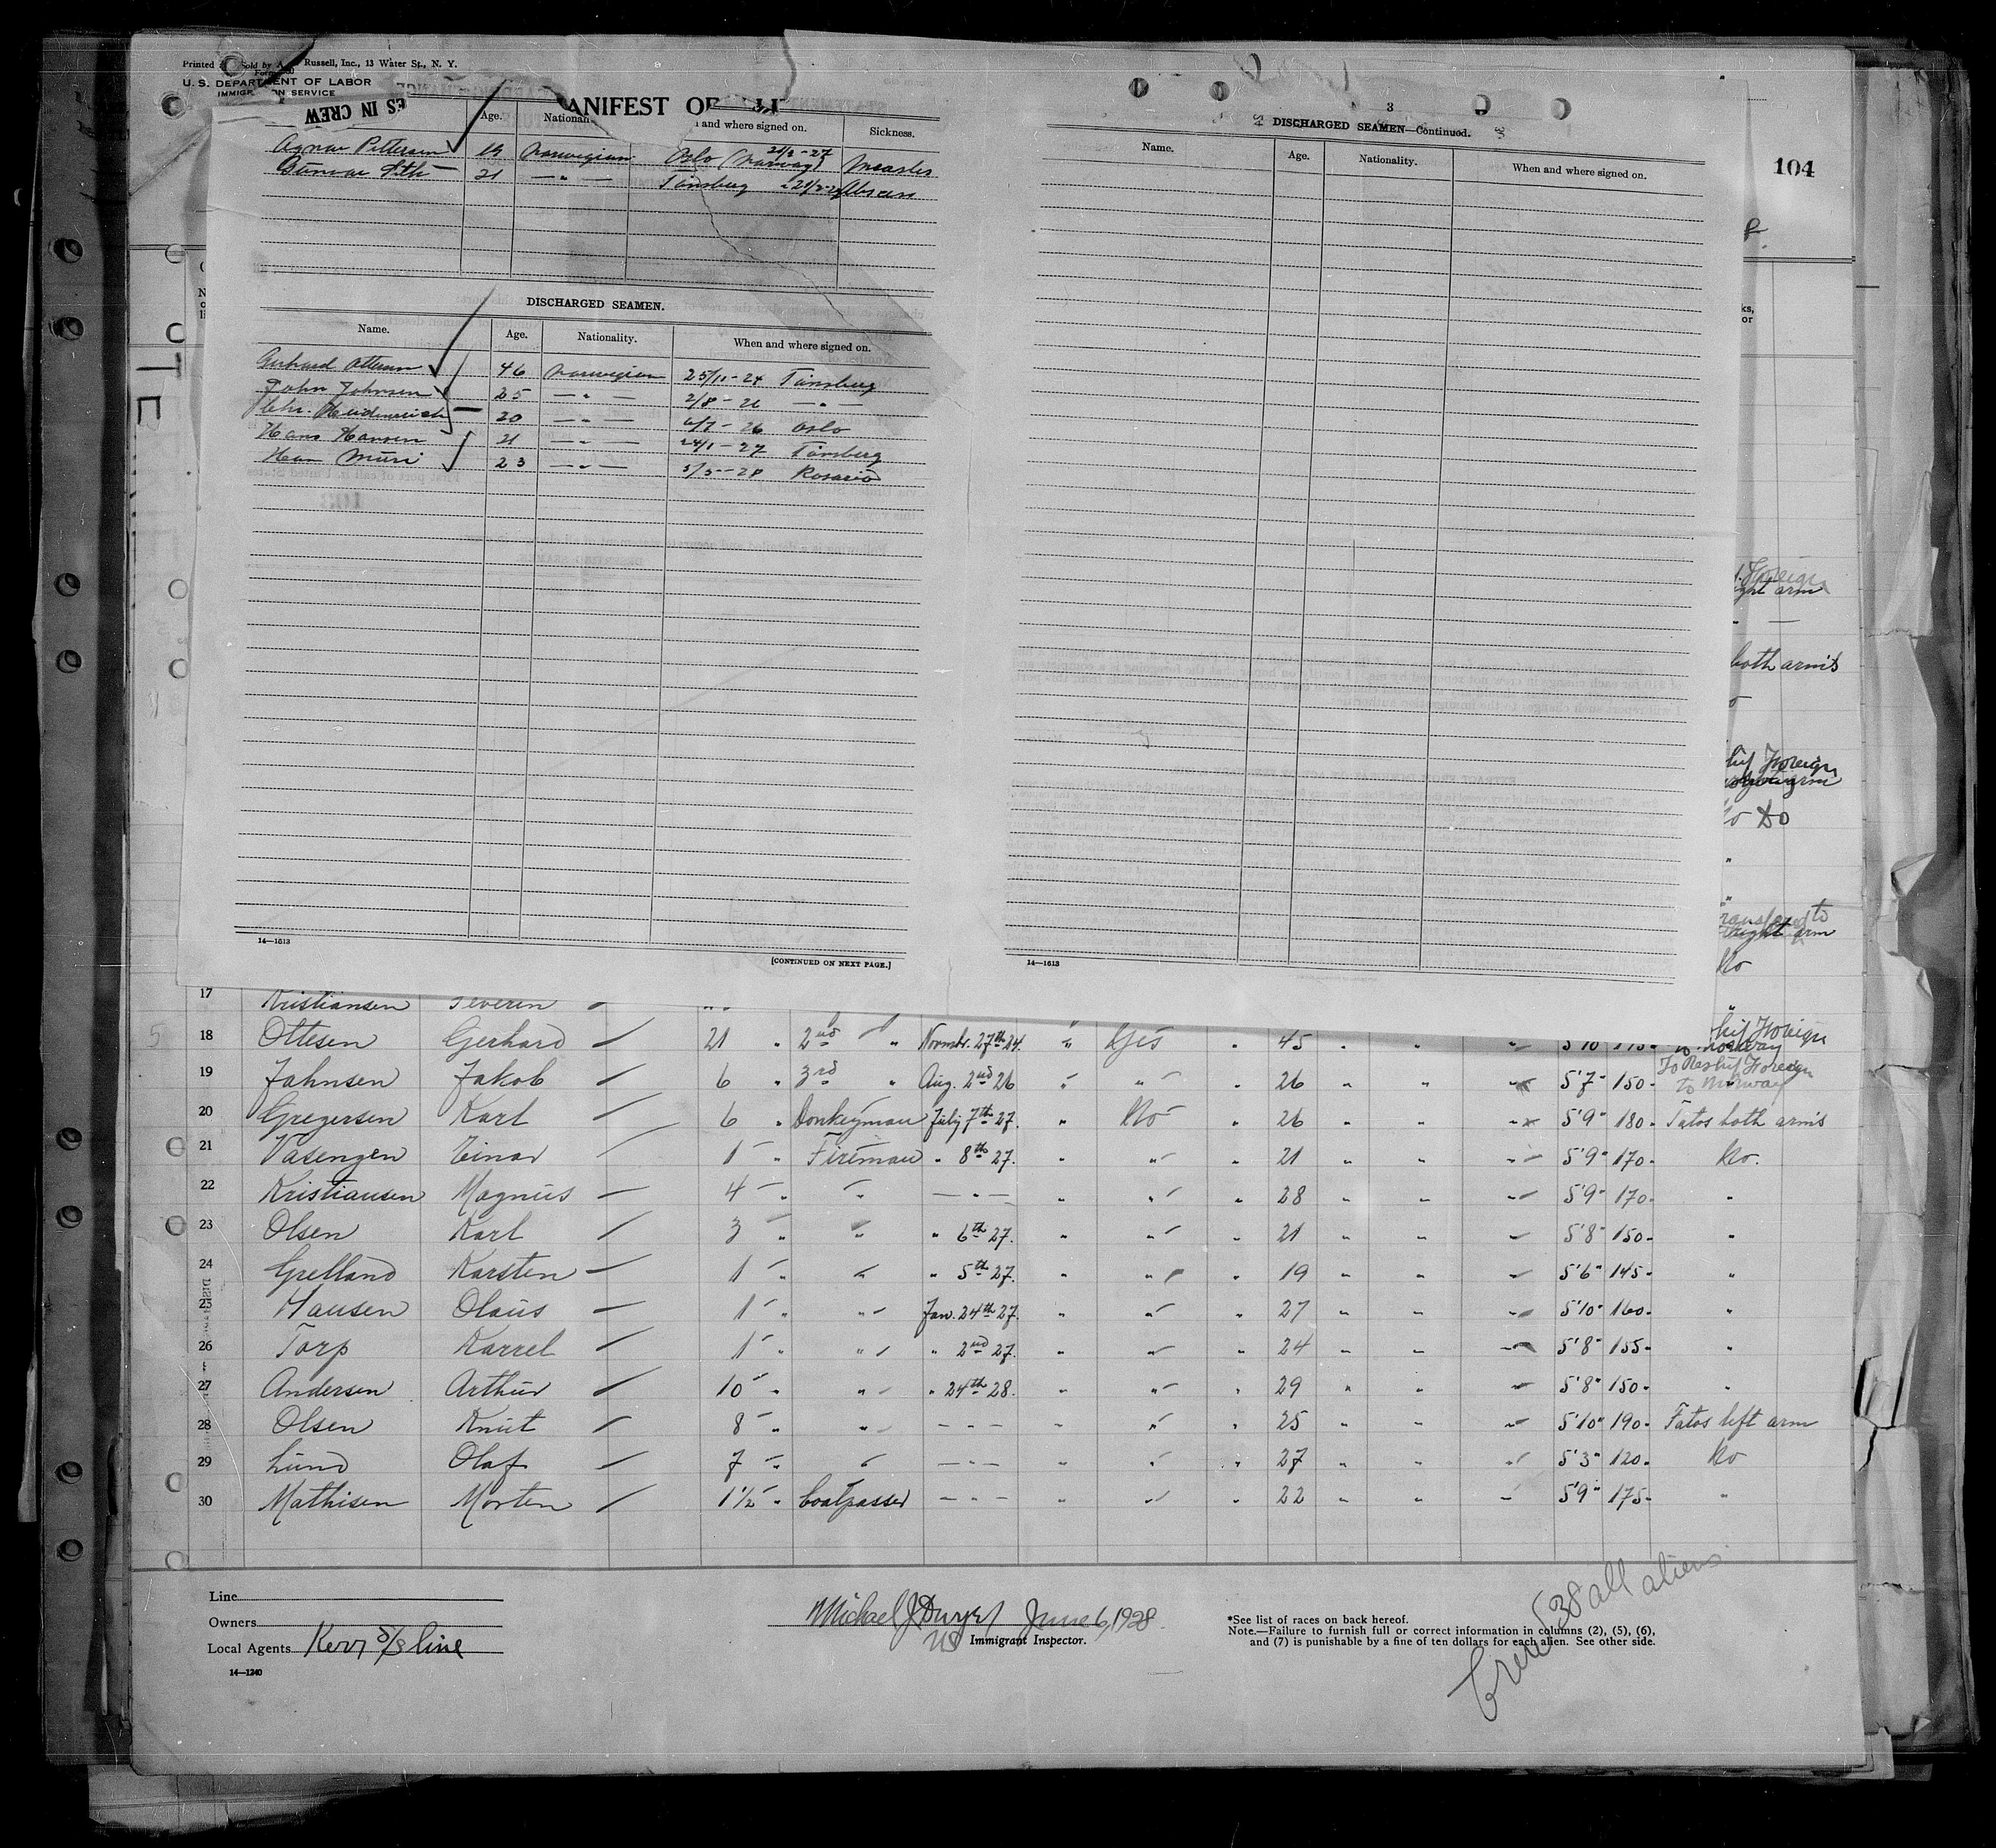 Printed Sold by Russell, Inc., 13 Water St., N. Y.
U. S. DEPARTMENT OF LABOR
IMMIGR ON SERVICE
ANIFEST OF
ES IN CREW
104
Age. and where signed on. Sickness.
Agnar Pettersen 19 Norwegian Oslo (Norway) -27 Measles
Gunvar 21 — " — Tønsberg
DISCHARGED SEAMEN.
Name. Age. Nationality. When and where signed on.
Gerhard Ottesen 46 Norwegian 25/11-24 Tønsberg
John Johnsen 25 — " — 2/8-26 — "
Chr. 20 — " — 6/7-26 Oslo
Hans Hansen 21 — " — 24/1-27 Tønsberg
23 — " — 5/5-28 Rosario
14—1613
[CONTINUED ON NEXT PAGE.]
3
DISCHARGED SEAMEN—Continued.
Name. Age. Nationality. When and where signed on.
14—1613
Foreign
ight arm
both arms
hip Foreign
Do
to
right arm
No
17 Kristiansen Severin
18 Ottesen Gerhard 21 " 2nd " Novmbr. 27th 24. " Yes " 45 " " " 5'10" hip Foreign to Norway
19 Johnsen Jakob 6 " 3rd " Aug. 2nd 26 " " " 26 " " " 5'7" 150- To Reship Foreign to Norway
20 Gregersen Karl 6 " Donkeyman July 7th 27. " No " 26 " " " 5'9" 180- Tatos both arms
21 Vasengen Einar 1 " Fireman " 8th 27. " " " 21 " " " 5'9" 170- No.
22 Kristiansen Magnus 4 " " — " — " " " 28 " " " 5'9" 170- "
23 Olsen Karl 3 " " " 6th 27. " " " 21 " " " 5'8" 150- "
24 Grelland Karsten 1 " " " 5th 27. " " " 19 " " " 5'6" 145- "
25 Hansen Olaus 1 " " Jan. 24th 27. " " " 27 " " " 5'10" 160- "
26 Torp Karrel 1 " " " 2nd 27. " " " 24 " " " 5'8" 155- "
27 Andersen Arthur 10 " " " 24th 28. " " " 29 " " " 5'8" 150- "
28 Olsen Knut 8 " " — " — " " " 25 " " " 5'10" 190- Tatos left arm
29 Lund Olaf 7 " " — " — " " " 27 " " " 5'3" 120- No
30 Mathisen Morten 1½ " Coalpasser — " — " " " 22 " " " 5'9" 175- "
Line
Owners
Local Agents Kerr S/S line
14—1240
Michael J Dwyer June 6, 1928
US Immigrant Inspector.
*See list of races on back hereof.
Note.—Failure to furnish full or correct information in columns (2), (5), (6),
and (7) is punishable by a fine of ten dollars for each alien. See other side.
Crew 38 all aliens